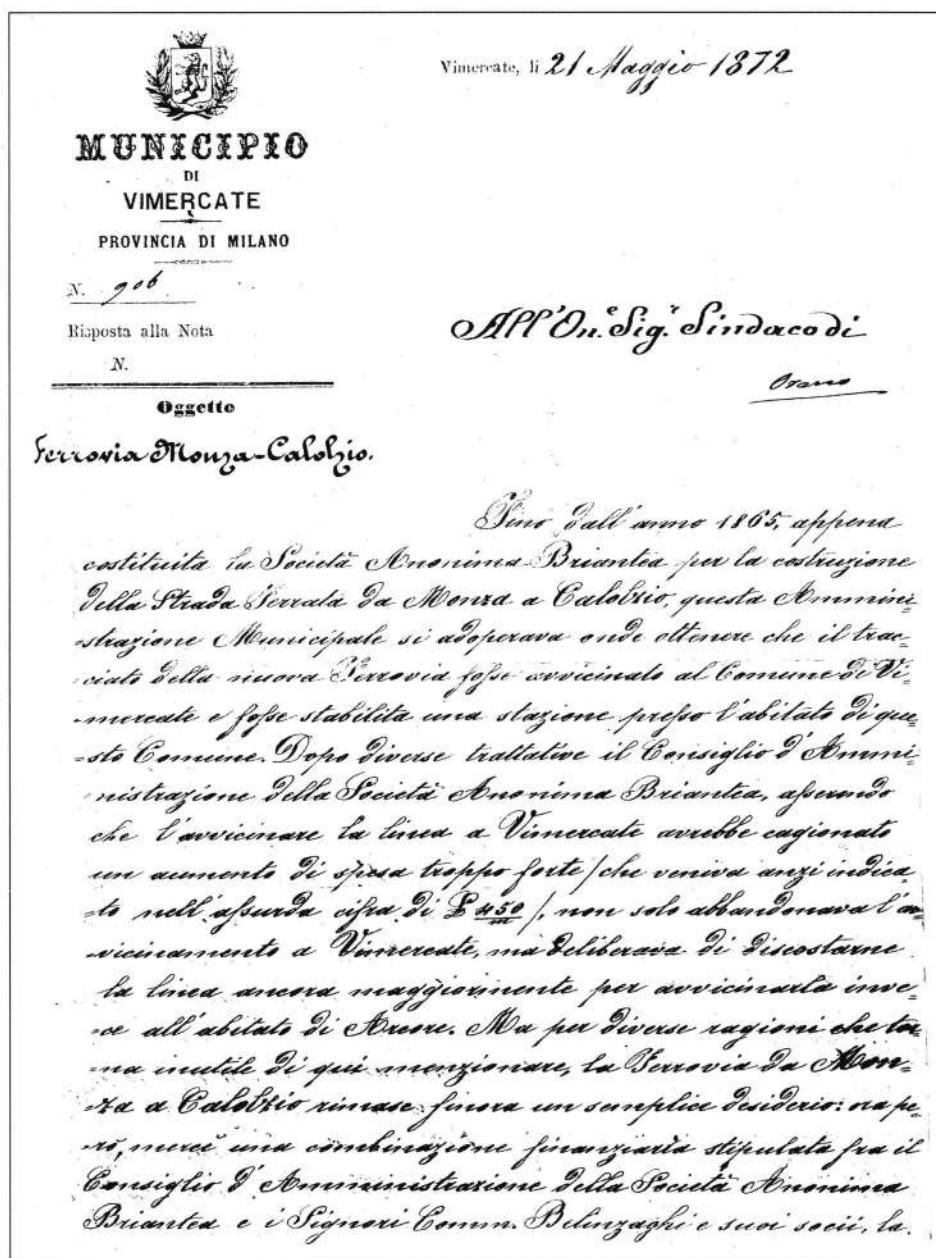 Vimercate, li 21 Maggio 1872
MUNICIPIO
DI
VIMERCATE
PROVINCIA DI MILANO
N. 906
Risposta alla Nota
N.
All'On.e Sig.r Sindaco di
Oggetto
Ferrovia Monza-Calolzio.
Fino dall'anno 1865, appena
costituita la Società Anonima Briantea per la costruzione
della Strada Ferrata da Monza a Calolzio, questa Ammini-
-strazione Municipale si adoperava onde ottenere che il trac-
-ciato della nuova Ferrovia fosse avvicinato al Comune di Vi-
-mercate e fosse stabilita una stazione presso l'abitato di que-
-sto Comune. Dopo diverse trattative il Consiglio d'Ammi-
-nistrazione della Società Anonima Briantea, asserendo
che l'avvicinare la linea a Vimercate avrebbe cagionato
un aumento di spesa troppo forte (che veniva anzi indica-
-to nell'assurda cifra di £ 450/m), non solo abbandonava l'av-
-vicinamento a Vimercate, ma deliberava di discostarne
la linea ancora maggiormente per avvicinarla inve-
-ce all'abitato di Arcore. Ma per diverse ragioni che tor-
-na inutile di qui menzionare, la Ferrovia da Mon-
-za a Calolzio rimase finora un semplice desiderio: ora pe-
-rò, mercè una combinazione finanziaria stipulata fra il
Consiglio d'Amministrazione della Società Anonima
Briantea e i Signori Comm. Belinzaghi e suoi socii, la